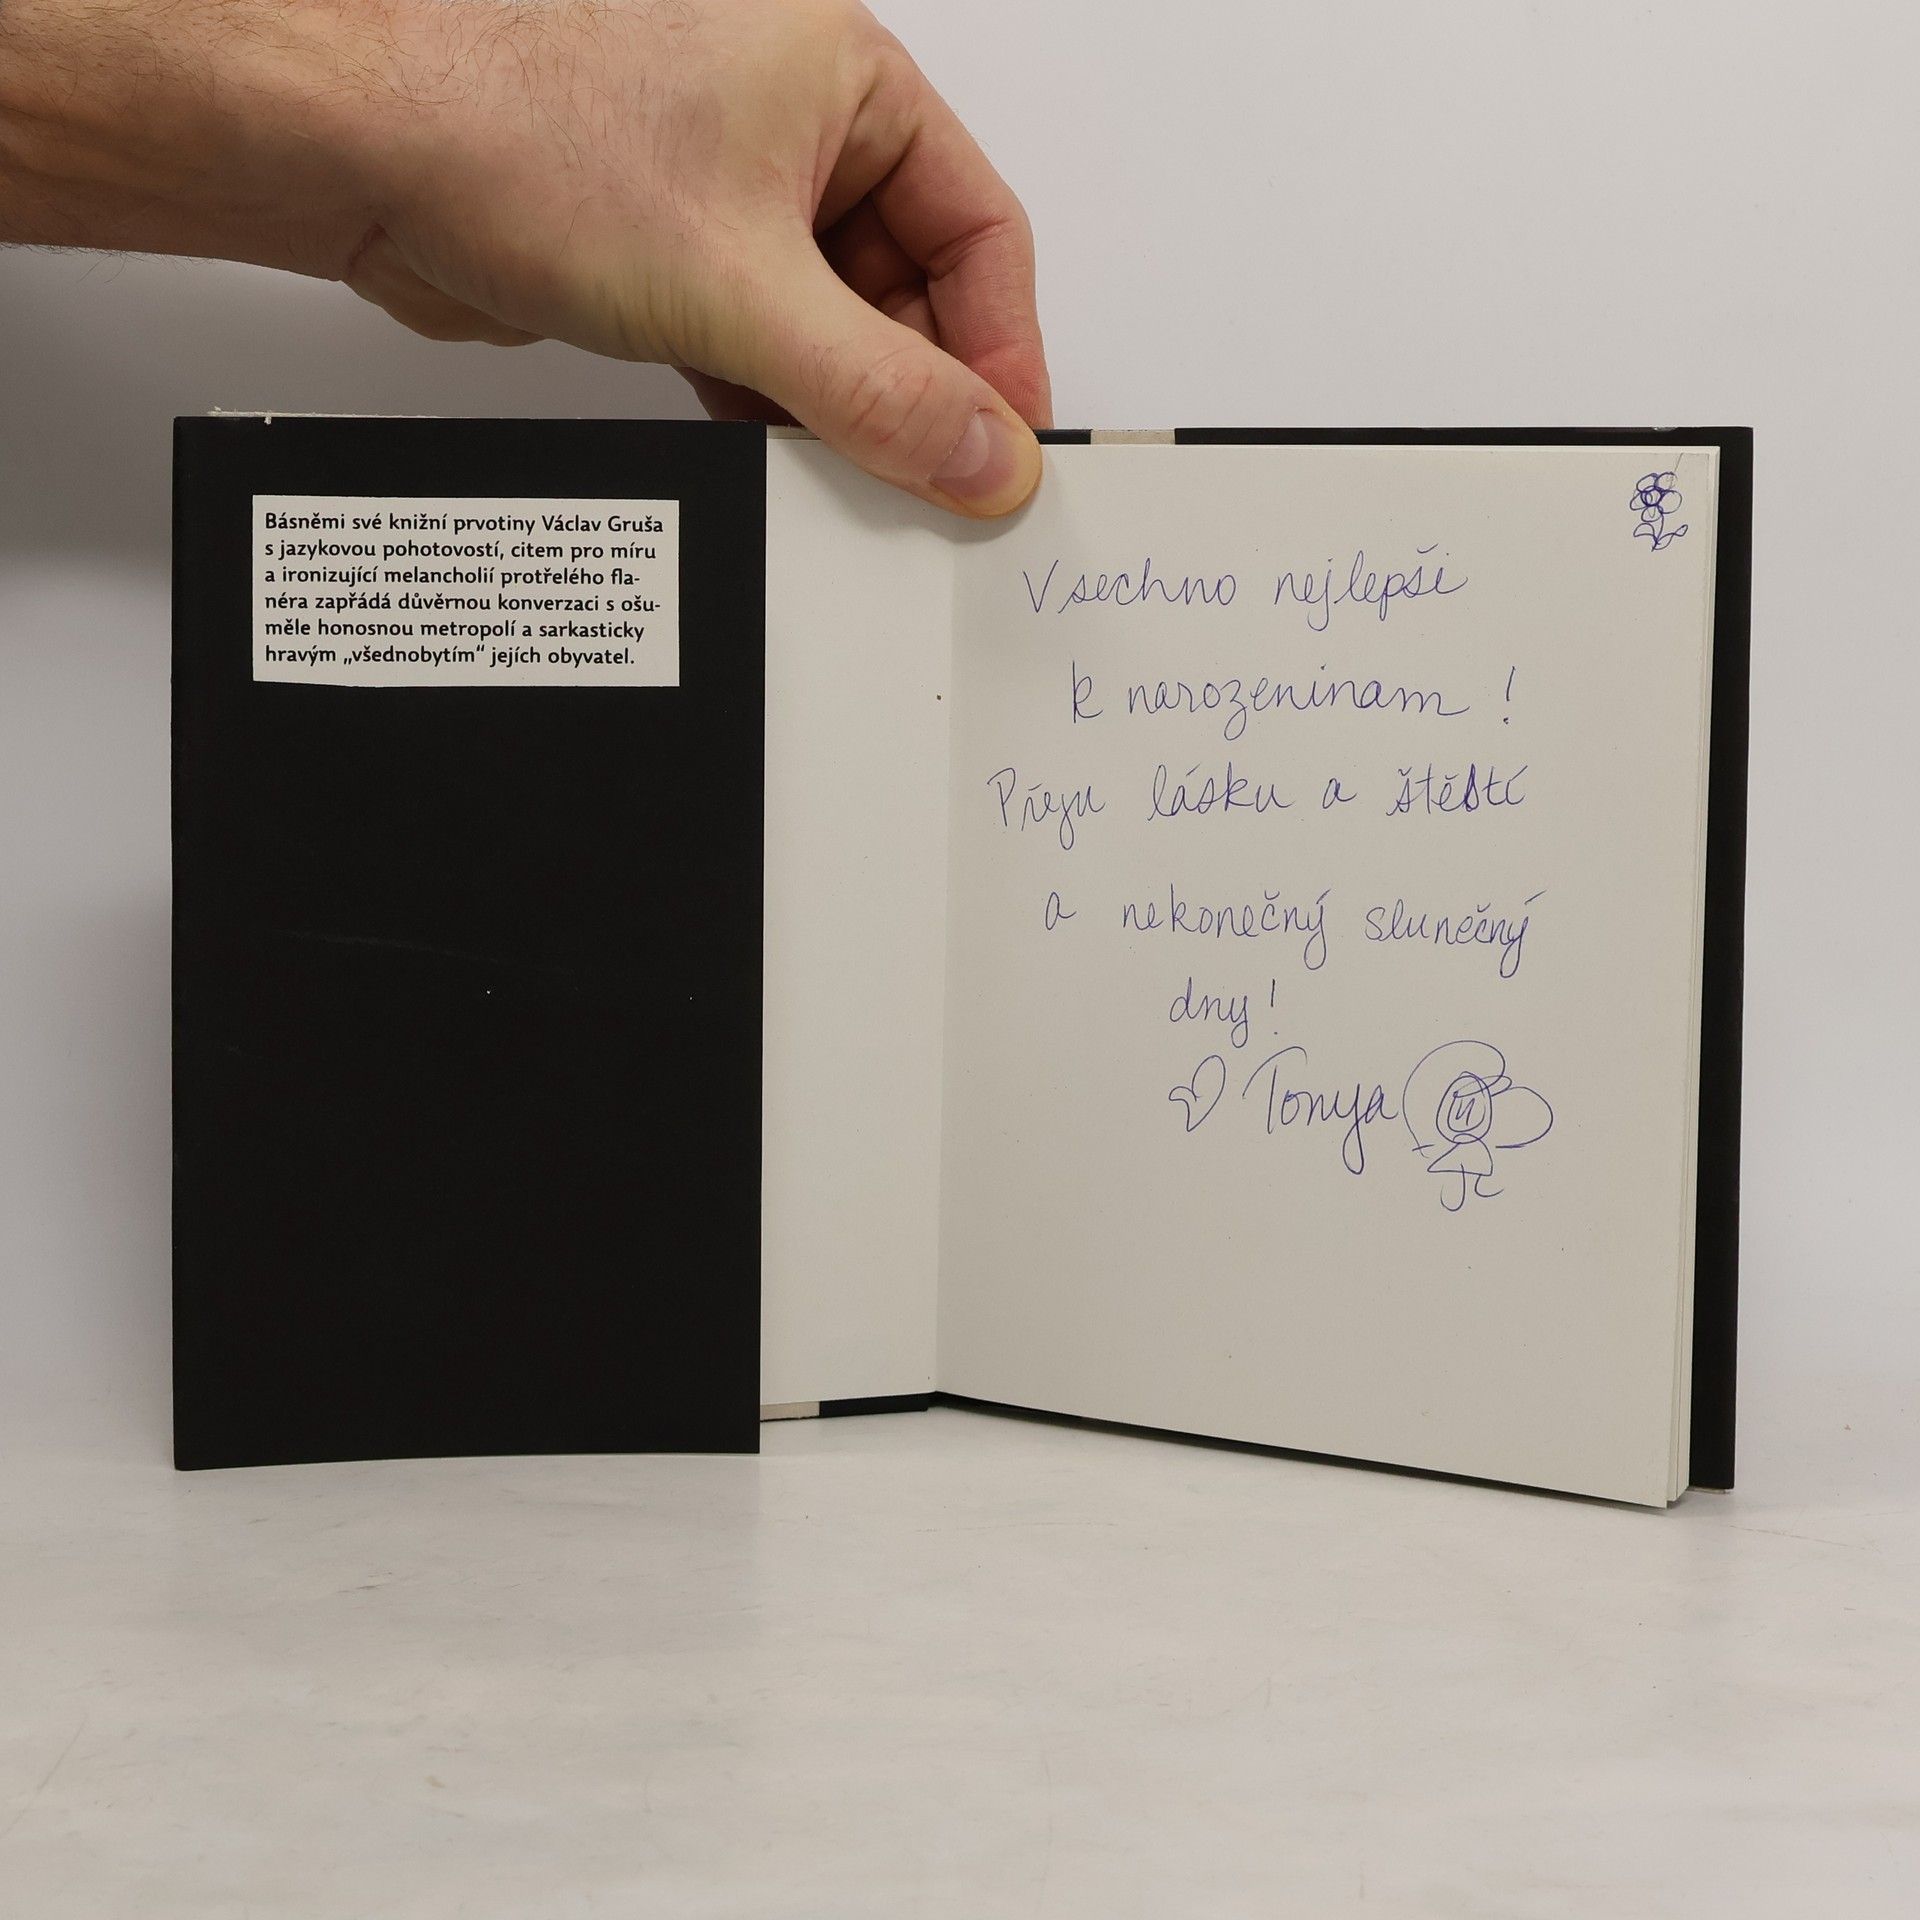 Básněmi své knižní prvotiny Václav Gruša
s jazykovou pohotovostí, citem pro míru
a ironizující melancholií protřelého fla-
néra zapřádá důvěrnou konverzaci s ošu-
měle honosnou metropolí a sarkasticky
hravým „všednobytím“ jejích obyvatel.
Vsechno nejlepši
k narozeninam !
Přeju lásku a štěstí
a nekonečný slunečný
dny!
Tonya